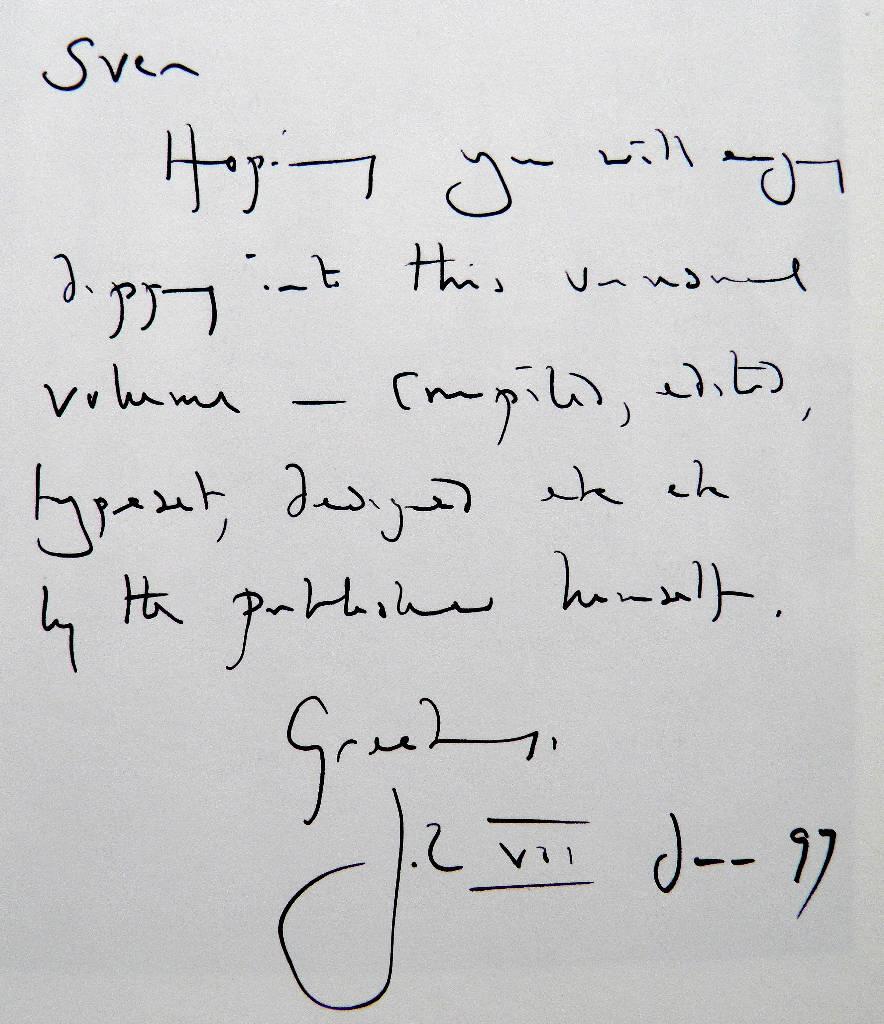 Sven
Hoping you will enjoy
dipping into this unusual
volume — compiled, edited,
typeset, designed etc etc
by the publisher himself.
Greetings.
VII 97